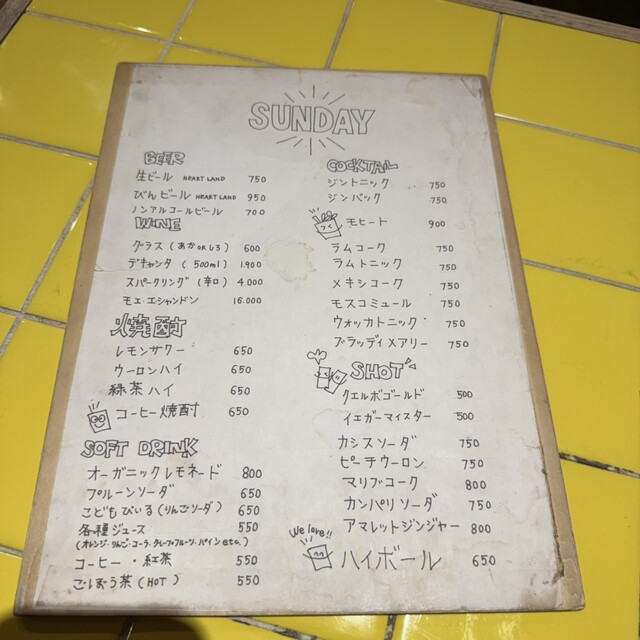 SUNDAY
BEER
生ビール HEART LAND 750
びんビール HEART LAND 950
ノンアルコールビール 700
WINE
グラス (あか or しろ) 600
デキャンタ (500ml) 1.900
スパークリング (辛口) 4.000
モエ・エ・シャンドン 16.000
焼酎
レモンサワー 650
ウーロンハイ 650
緑茶ハイ 650
コーヒー焼酎 650
SOFT DRINK
オーガニックレモネード 800
プルーンソーダ 650
こどもびいる (りんごソーダ) 650
各種ジュース 550
(オレンジ・りんご・コーラ・グレープフルーツ・パイン etc.)
コーヒー・紅茶 550
ごぼう茶 (HOT) 550
COCKTAIL
ジントニック 750
ジンバック 750
モヒート 900
ラムコーク 750
ラムトニック 750
メキシコーク 750
モスコミュール 750
ウォッカトニック 750
ブラッディメアリー 750
SHOT
クエルボゴールド 500
イエガーマイスター 500
カシスソーダ 750
ピーチウーロン 750
マリブコーク 800
カンパリソーダ 750
アマレットジンジャー 800
We love!!
ハイボール 650